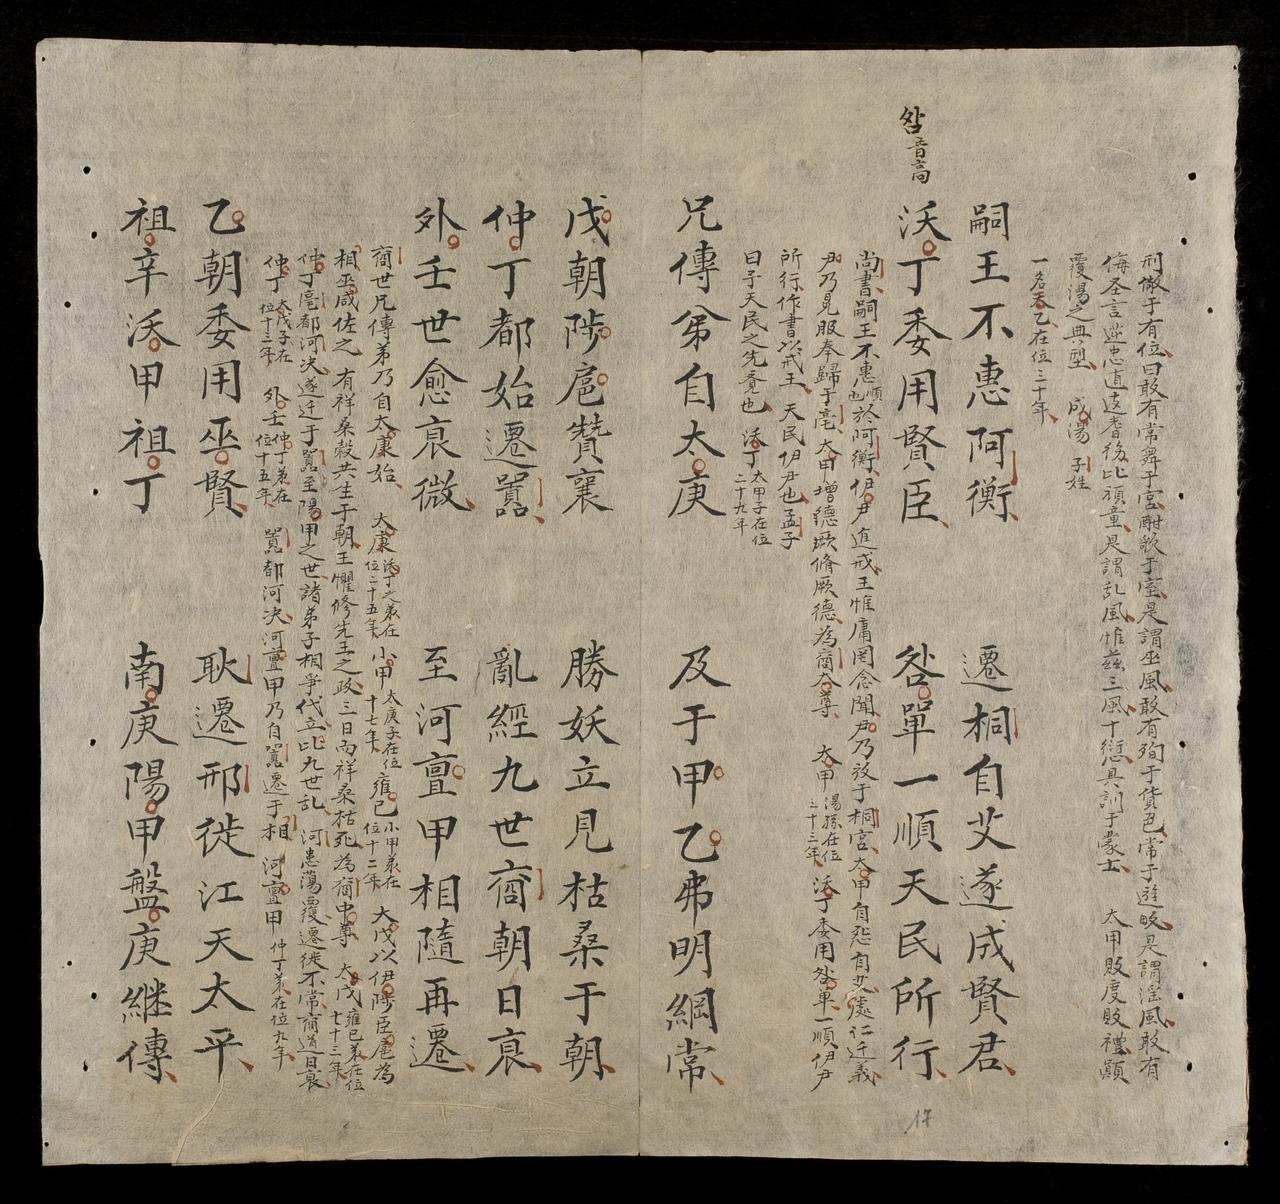 刑儆于有位曰敢有常舞于宮酣歌于室是謂巫風敢有殉于貨色常于遊畋是謂淫風敢有
侮圣言逆忠直遠耆德比頑童是謂乱風惟茲三風十愆具訓于蒙士 太甲敗度敗禮顛
覆湯之典型 成湯 子姓
一名天乙在位三十年
嗣王不惠阿衡 遷桐自艾遂成賢君
咎音高
沃丁委用賢臣 咎單一順天民所行
尚書嗣王不惠順也於阿衡伊尹進戒王惟庸罔念聞尹乃放于桐宮太甲自怨自艾處仁迁義
尹乃冕服奉歸于亳太甲增德厥脩厥德為商令尊 太甲湯孫在位三十三年 沃丁委用咎單一順伊尹
所行作書以戒王 天民伊尹也孟子
曰予天民之先覺也 沃丁太甲子在位二十九年
兄傳弟自太庚 及于甲乙弗明綱常
戊朝陟扈贊襄 勝妖立見枯桑于朝
仲丁都始遷囂 亂經九世商朝日衰
外壬世愈衰微 至河亶甲相隨再遷
商世兄傳弟乃自太康始 大康沃丁之弟在位二十五年 小甲太庚子在位十七年 雍己小甲弟在位十二年 大戊以伊陟臣扈為
相巫咸佐之 有祥桑榖共生于朝王懼修先王之政三日而祥桑枯死為商中尊 大戊雍己弟在位七十三年
仲丁亳都河决遂迁于囂至陽甲之世諸弟子相爭代立比九世乱 河患蕩覆遷徙不常商道日衰
仲丁太戊子在位十三年 外壬仲丁弟在位十五年 囂都河决河亶甲乃自囂遷于相 河亶甲仲丁弟在位九年
乙朝委用巫賢 耿遷邢徙江天太平
祖辛沃甲祖丁 南庚陽甲盤庚継傳
17